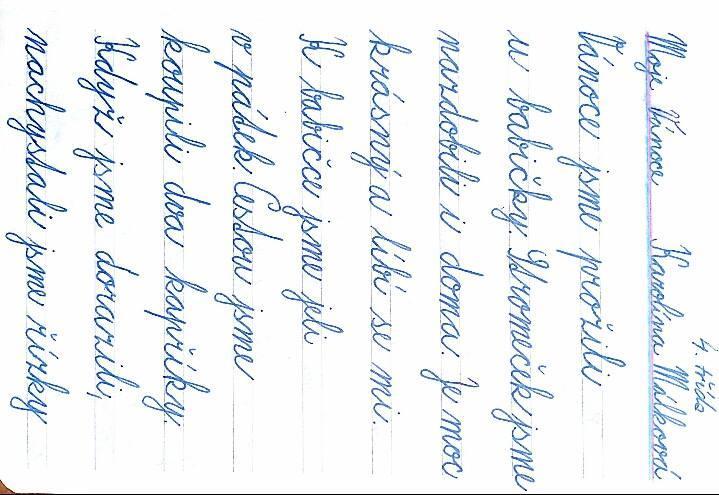 4. třída
Moje Vánoce Karolína Mílková
Vánoce jsme prožili
u babičky. Stromeček jsme
nazdobili i doma. Je moc
krásný a líbí se mi.
K babičce jsme jeli
v pátek. Cestou jsme
koupili dva kapříky.
Když jsme dorazili,
nachystali jsme řízky